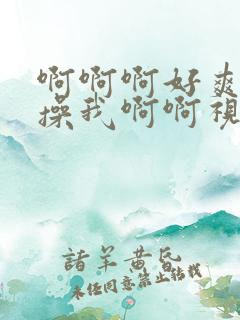 啊啊啊好爽
操我啊啊视
諸羊黄昏
未经同意禁止转载